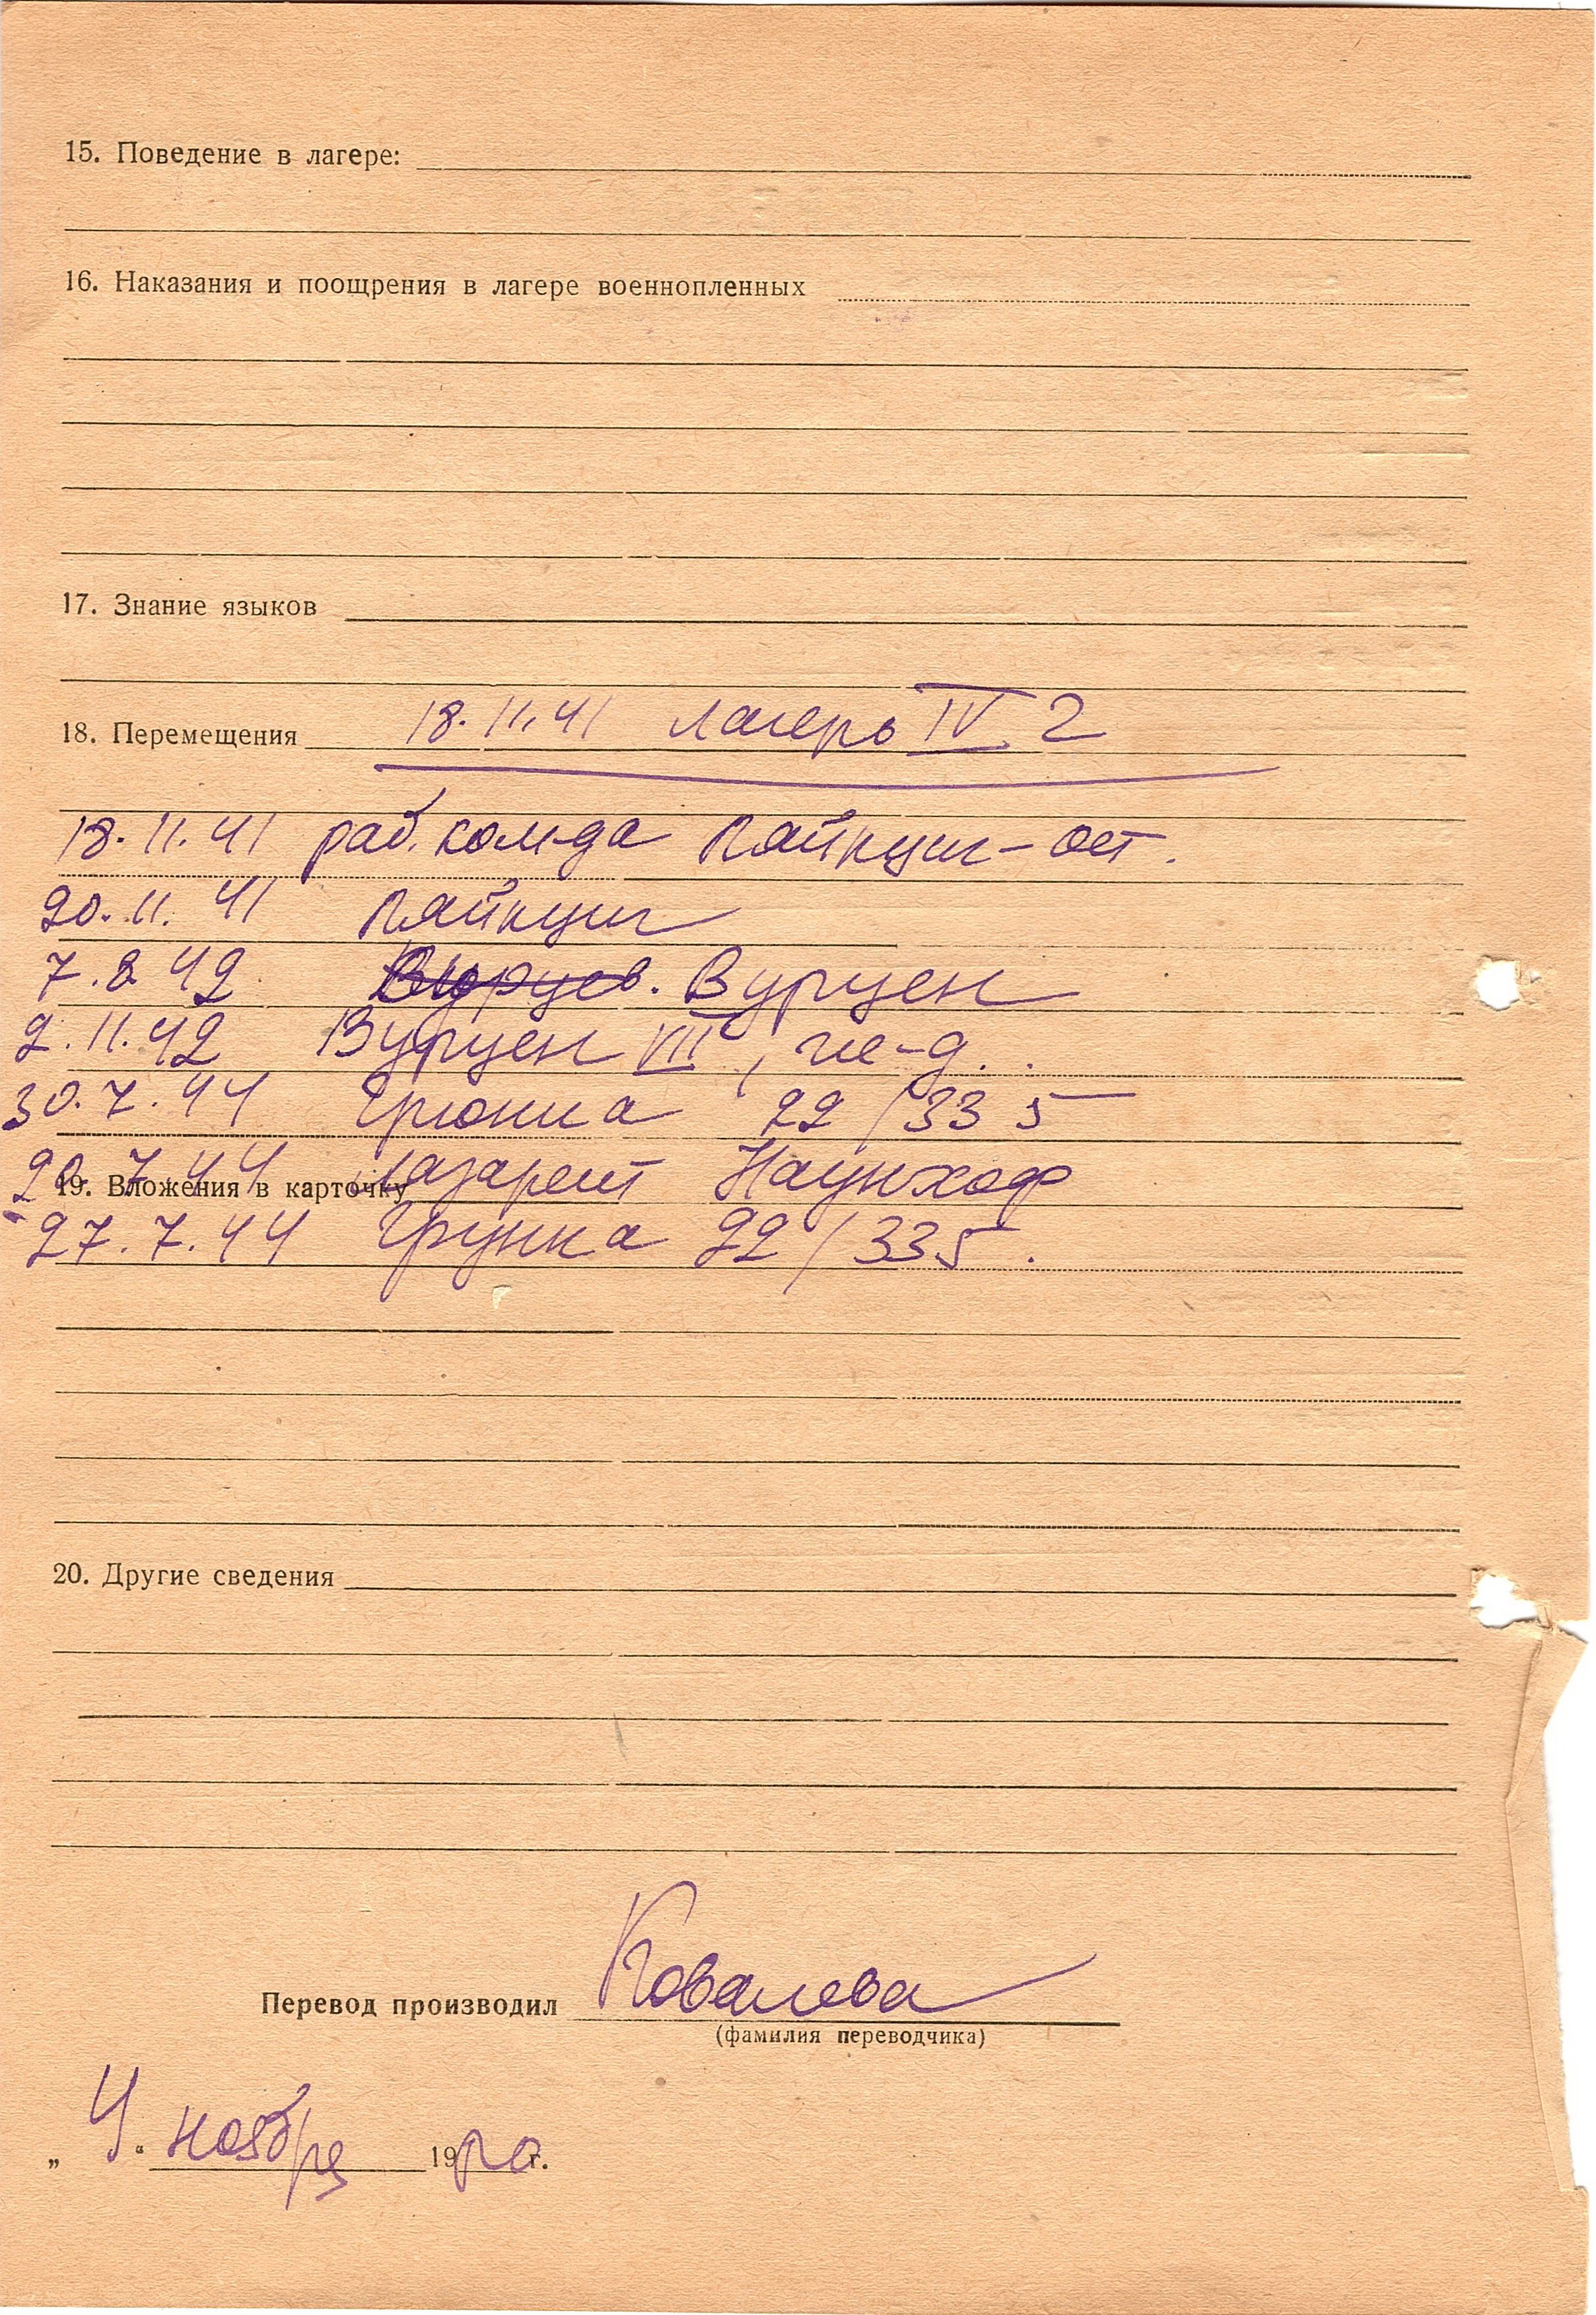 15. Поведение в лагере:
16. Наказания и поощрения в лагере военнопленных
17. Знание языков
18. Перемещения 18.11.41 лагерь IV 2
18.11.41 раб. ком-да Лайпциг-ост.
20.11.41 Лайпциг
7.8 42 Вурцен
2.11.42 Вурцен VII,
30.7.44 22/335
7.44 лазарет Наунхоф
19. Вложения в карточку
27.7.44 22/335.
20. Другие сведения
Перевод производил Ковалева
(фамилия переводчика)
„4“ ноября 19 г.